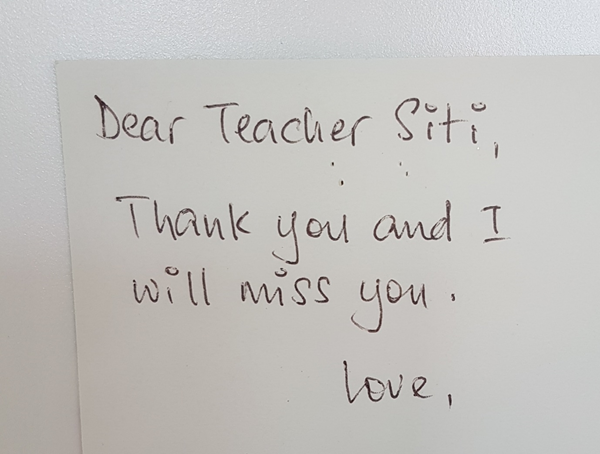 Dear Teacher Siti,
Thank you and I
will miss you.
Love,